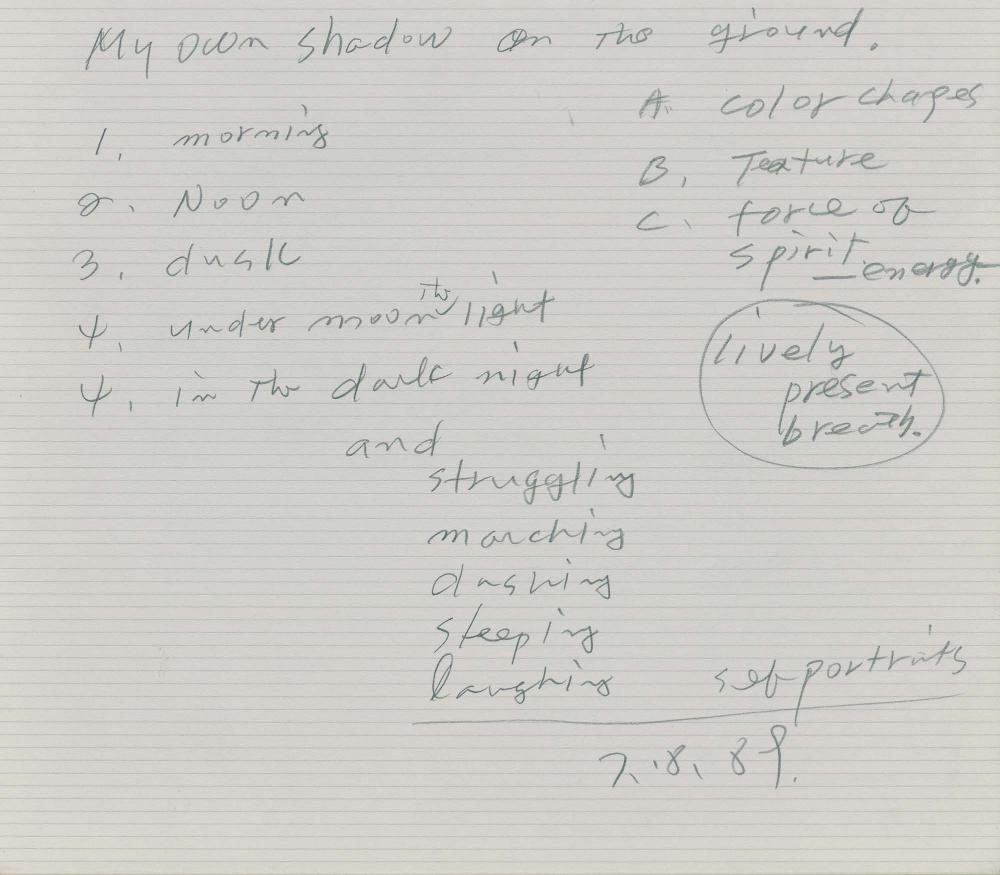 My own shadow on the ground.
1. morning
2. Noon
3. dusk
4. under moon the light
4. in the dark night
and
struggling
marching
dashing
sleeping
laughing
A. color chages
B. Texture
C. force of
spirit_energy.
lively
present
breath.
self portraits
7. 8. 89.